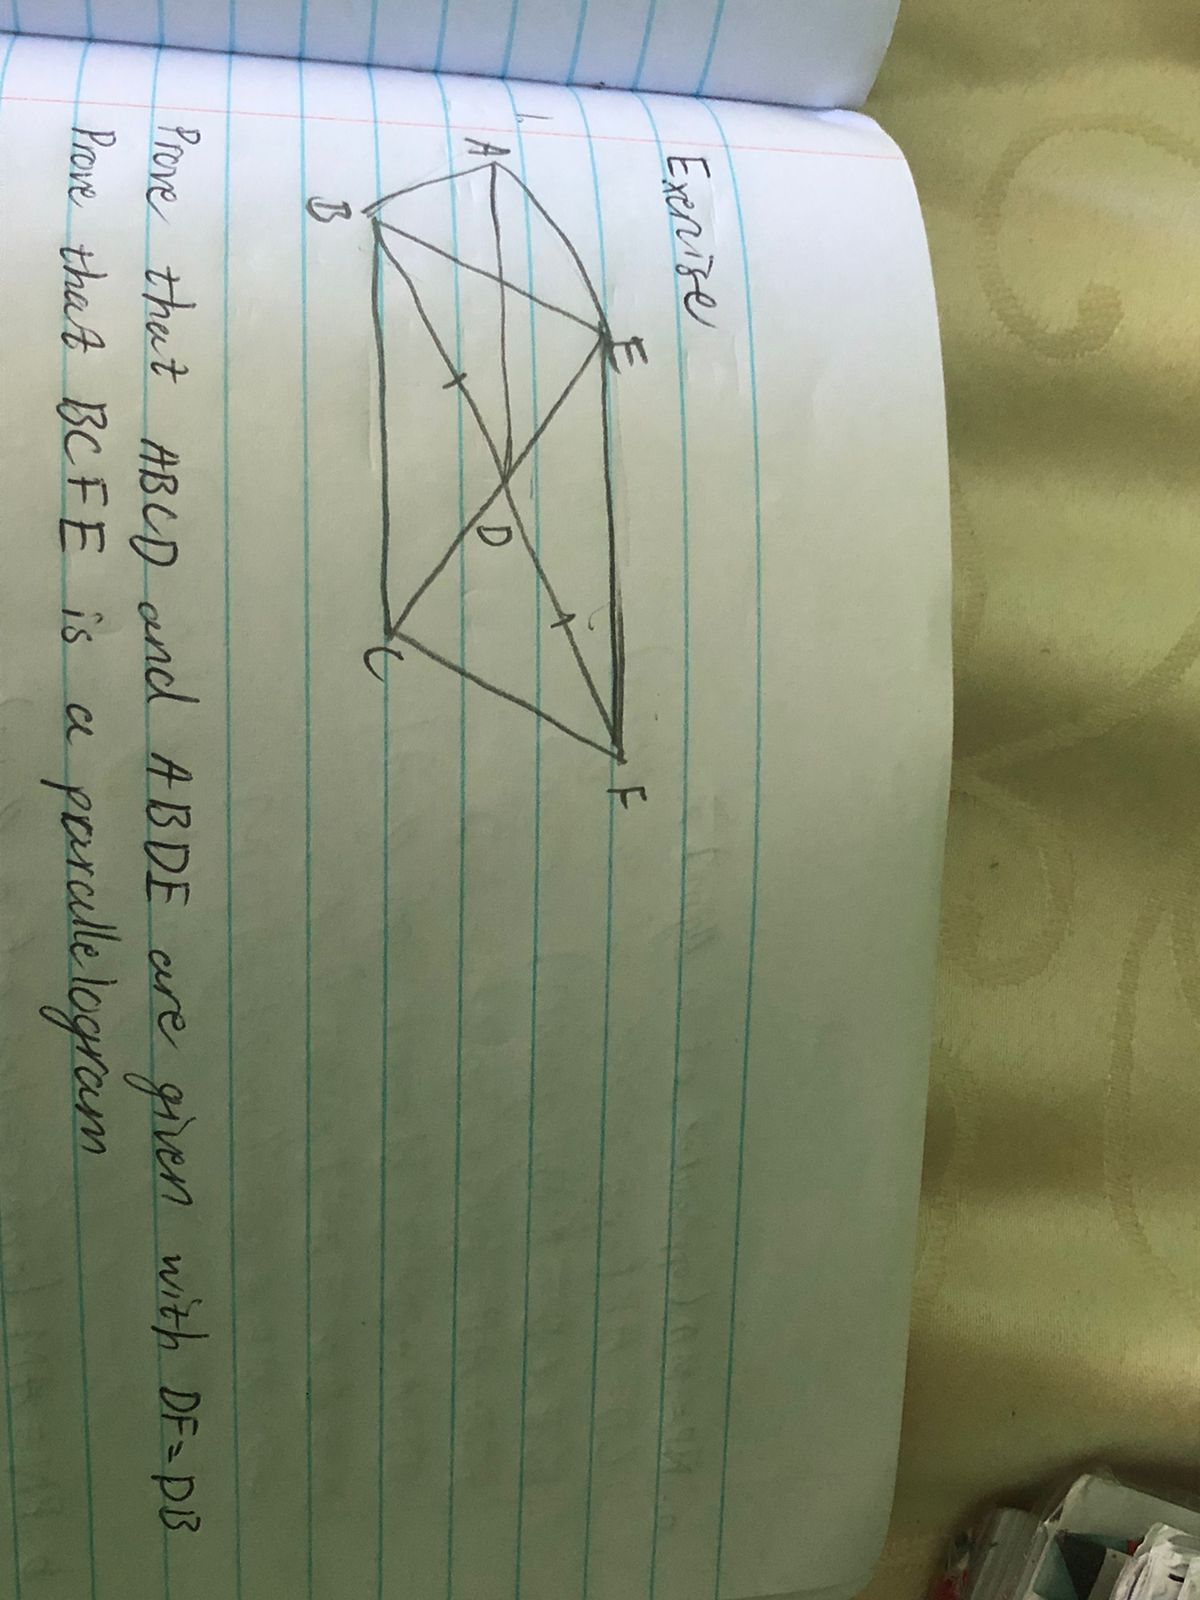 Exercise
1.
A
E
F
B
D
C
Prove that ABCD and ABDE are given with DF=DB
Prove that BCFE is a parallelogram